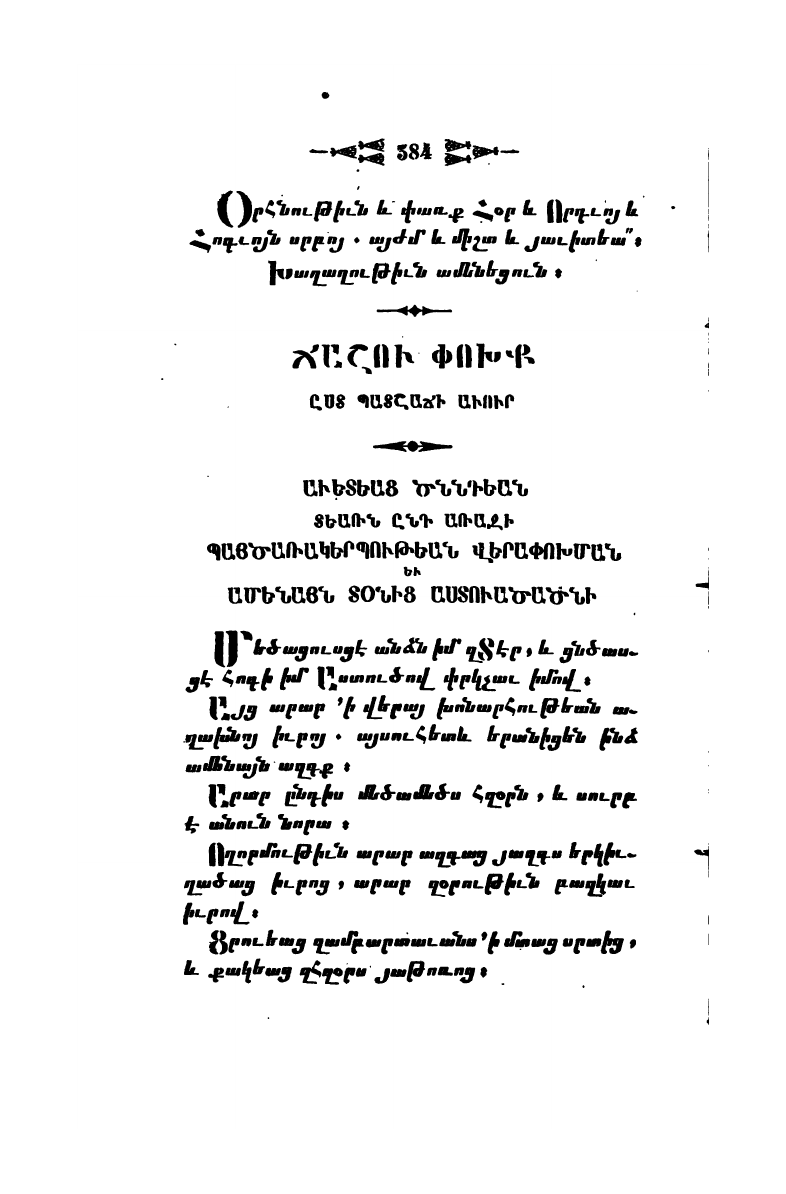 584
Օրհնութիւն և փառք Հօր և Որդւոյ և
Հոգւոյն սրբոյ . այժմ և միշտ և յաւիտեա՞ ։
Խաղաղութիւն ամենեցուն ։
ՃԱՇՈՒ ՓՈԽՔ
ԸՍՏ ՊԱՏՇԱՃԻ ԱՒՈՒՐ
ԱՒԵՏԵԱՑ ԾՆՆԴԵԱՆ
ՏԵԱՌՆ ԸՆԴ ԱՌԱՋԻ
ՊԱՅԾԱՌԱԿԵՐՊՈՒԹԵԱՆ ՎԵՐԱՓՈԽՄԱՆ
ԵՒ
ԱՄԵՆԱՅՆ ՏՕՆԻՑ ԱՍՏՈՒԱԾԱԾՆԻ
Մեծացուսցէ անձն իմ զՏէր , և ցնծաս-
ցէ Հոգի իմ Աստուծով փրկչաւ իմով ։
Այց արար ՚ի վերայ խոնարհութեան ա-
ղախնոյ իւրոյ . այսուհետև երանիցեն ինձ
ամենայն ազգք ։
Արար ընդիս մեծամեծս Հզօրն , և սուրբ
է անուն նորա ։
Ողորմութիւն արար ազգաց յազգս երկիւ-
ղածաց իւրոց , արար զօրութիւն բազկաւ
իւրով ։
Ցրուեաց զամբարտաւանս ՚ի մտաց սրտից ,
և քակեաց զհզօրս յաթոռոց ։